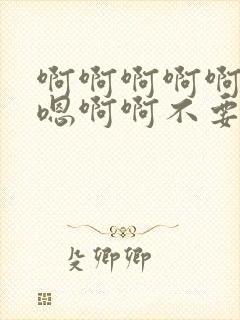 啊啊啊啊啊
嗯啊啊不要
殳卿卿